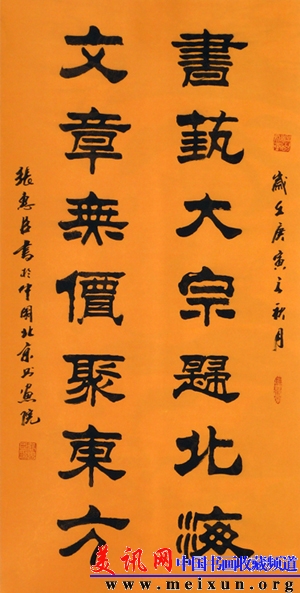 歲在庚寅之秋月
書埶大宗歸北海
文章無價聚東方
張惠臣書於中國北京书畫院
美讯网 中国书画收藏频道
www.meixun.org